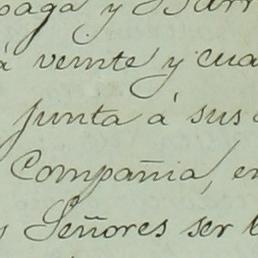 paga y Barr
á veinte y cua
junta á sus
Compañia, en
Señores ser